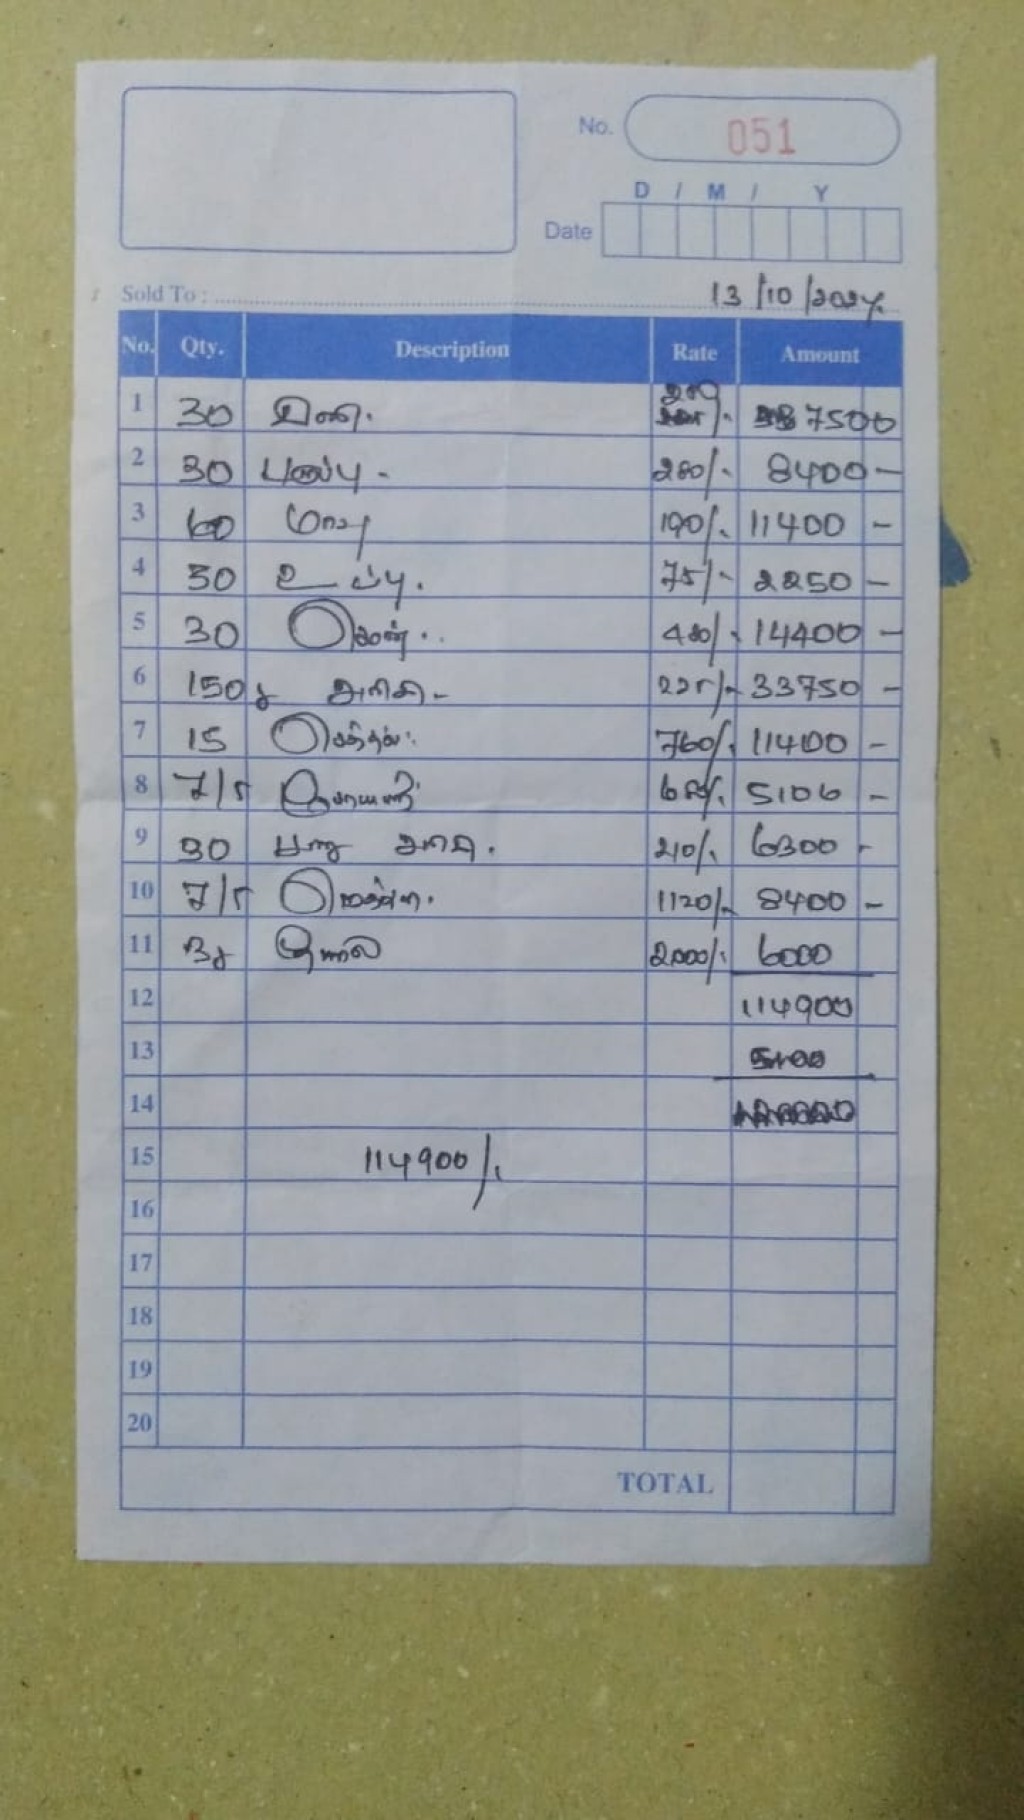 No. 051
D / M / Y
Date
Sold To : 13/10/2024
No. Qty. Description Rate Amount
1 30 சீனி. 250/- 7500
2 30 பருப்பு - 280/- 8400 -
3 60 மாவு 190/- 11400 -
4 30 உப்பு. 75/- 2250 -
5 30 480/- 14400 -
6 150 அரிசி - 225/- 33750 -
7 15 செத்தல் 760/- 11400 -
8 7/5 680/- 5100 -
9 30 பச்சை அரிசி. 210/- 6300 -
10 7/5 1120/- 8400 -
11 3 தேயிலை 2000/- 6000
12 114900
13 5100
14
15 114900/-
16
17
18
19
20
TOTAL